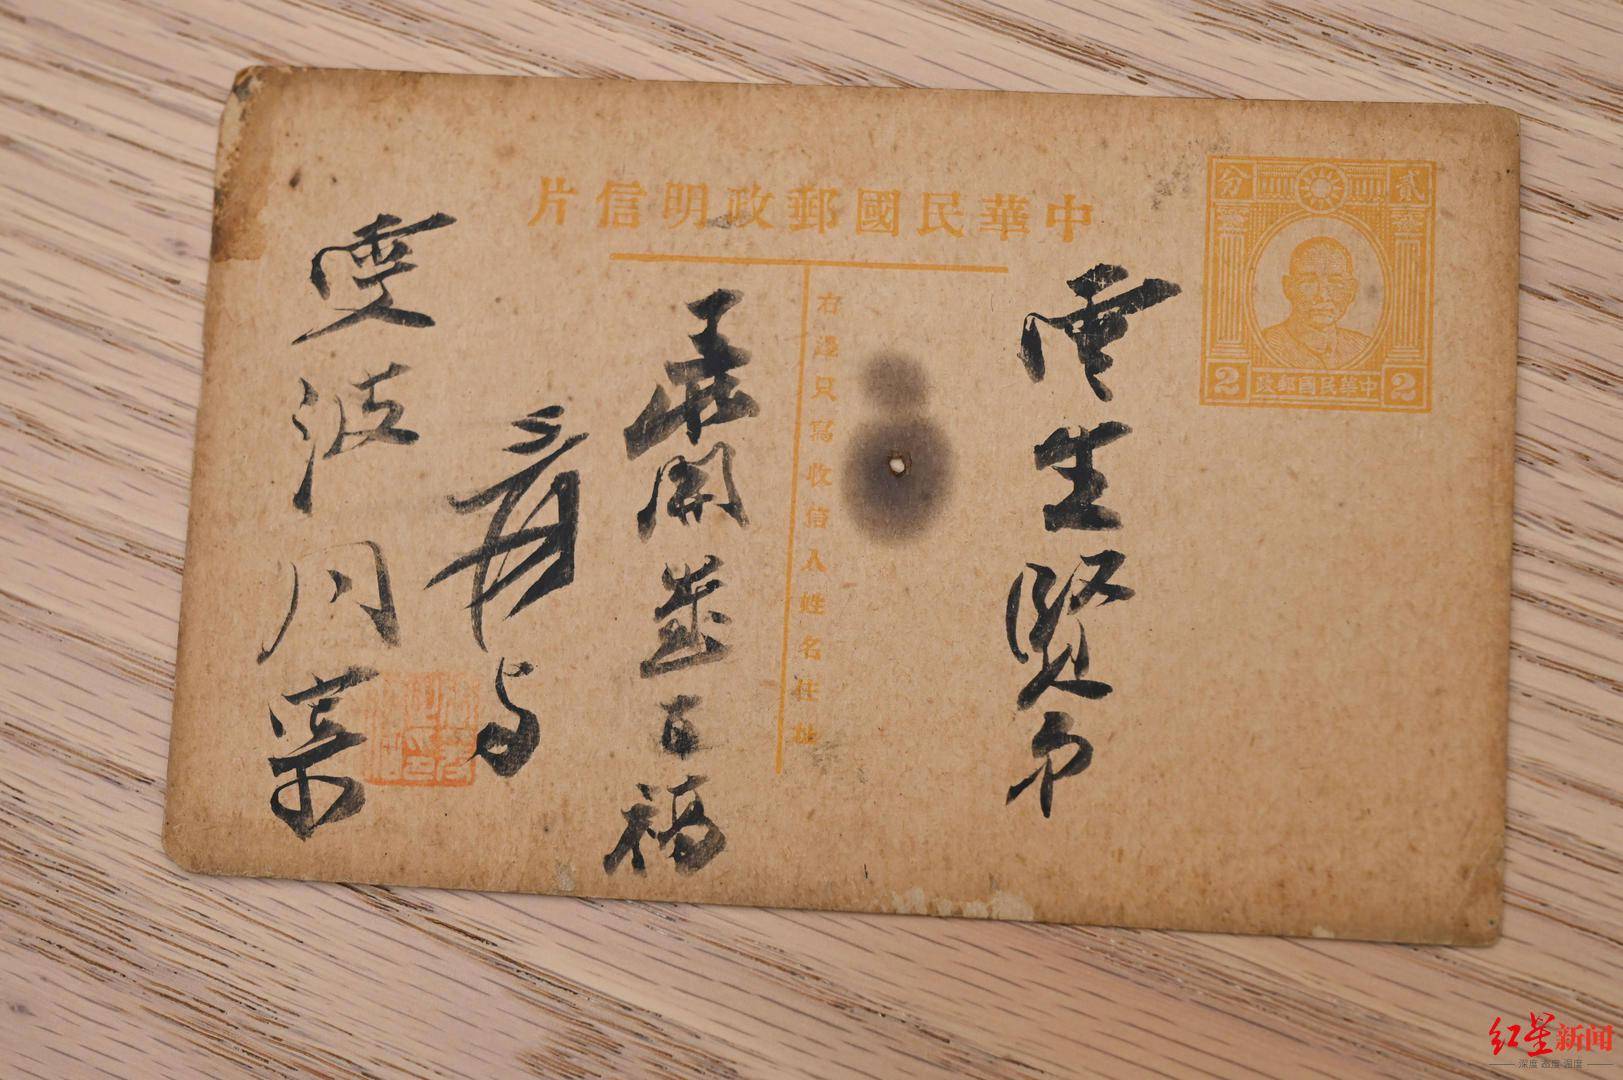 中華民國郵政明信片
貳分
2 中華民國郵政 2
雲生賢弟
右邊只寫收信人姓名住址
開 百福
爰
雯波同
红星新闻
深度 态度 温度